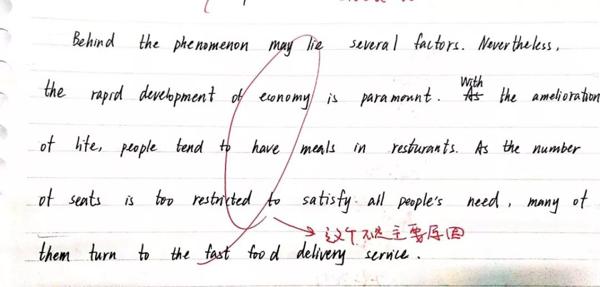 Behind the phenomenon may lie several factors. Nevertheless,
the rapid development of economy is paramount. With As the amelioration
of life, people tend to have meals in resturants. As the number
of seats is too restricted to satisfy all people's need, many of
这个不是主要原因
them turn to the fast food delivery service.